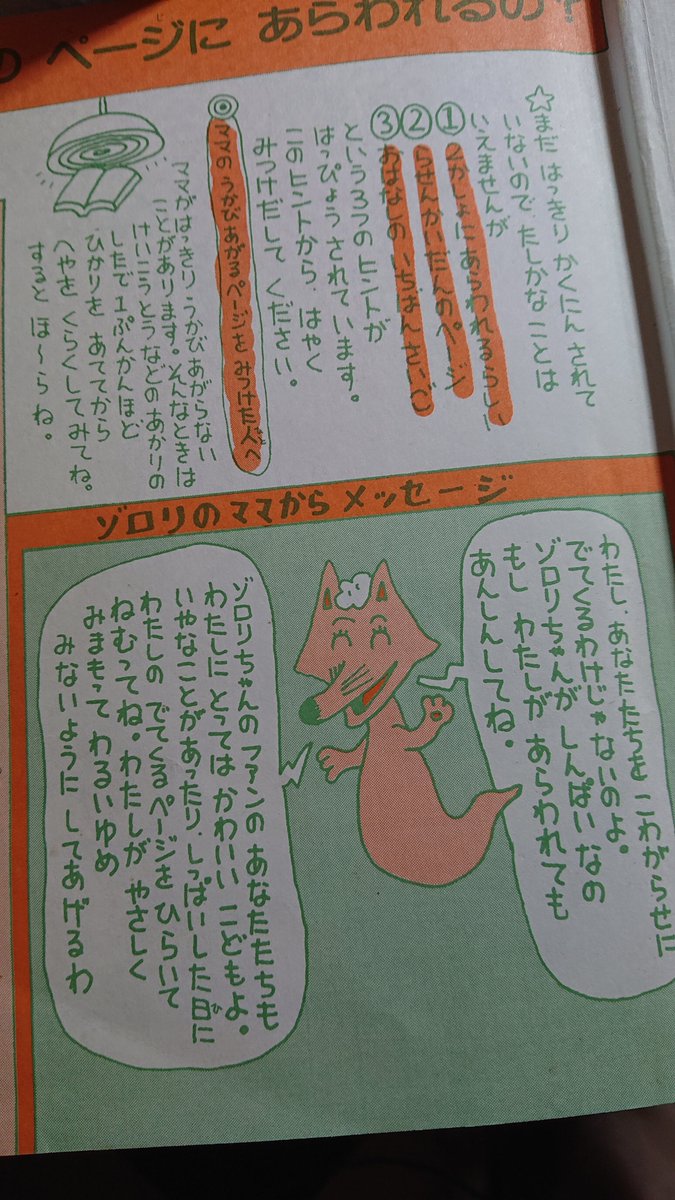 の ページに あらわれるの?
☆まだ はっきり かくにん されて
いないので、たしかな ことは
いえませんが
①2かしょに あらわれるらしい
②らせんかいだんのページ
③おはなしのいちばんさいご
という3つの ヒントが
はっぴょう されています。
このヒントから、はやく
みつけだして ください。
◎ママの うかびあがるページを みつけた人へ
ママがはっきり うかび あがらない
ことが あります。そんなときは
けいこうとう などの あかりの
したで 1ぷんかんほど
ひかりを あててから
へやを くらくしてみてね。
すると ほ〜らね。
ゾロリのママから メッセージ
わたし、あなたたちを こわがらせに
でてくるわけじゃないのよ。
ゾロリちゃんが しんぱいなの
もし わたしが あらわれても
あんしんしてね。
ゾロリちゃんの ファンの あなたたちも
わたしに とっては かわいい こどもよ。
いやなことが あったり、しっぱいした日に
ひ
わたしの でてくるページを ひらいて
ねむってね。わたしが やさしく
みまもって わるいゆめ
みないように してあげるわ